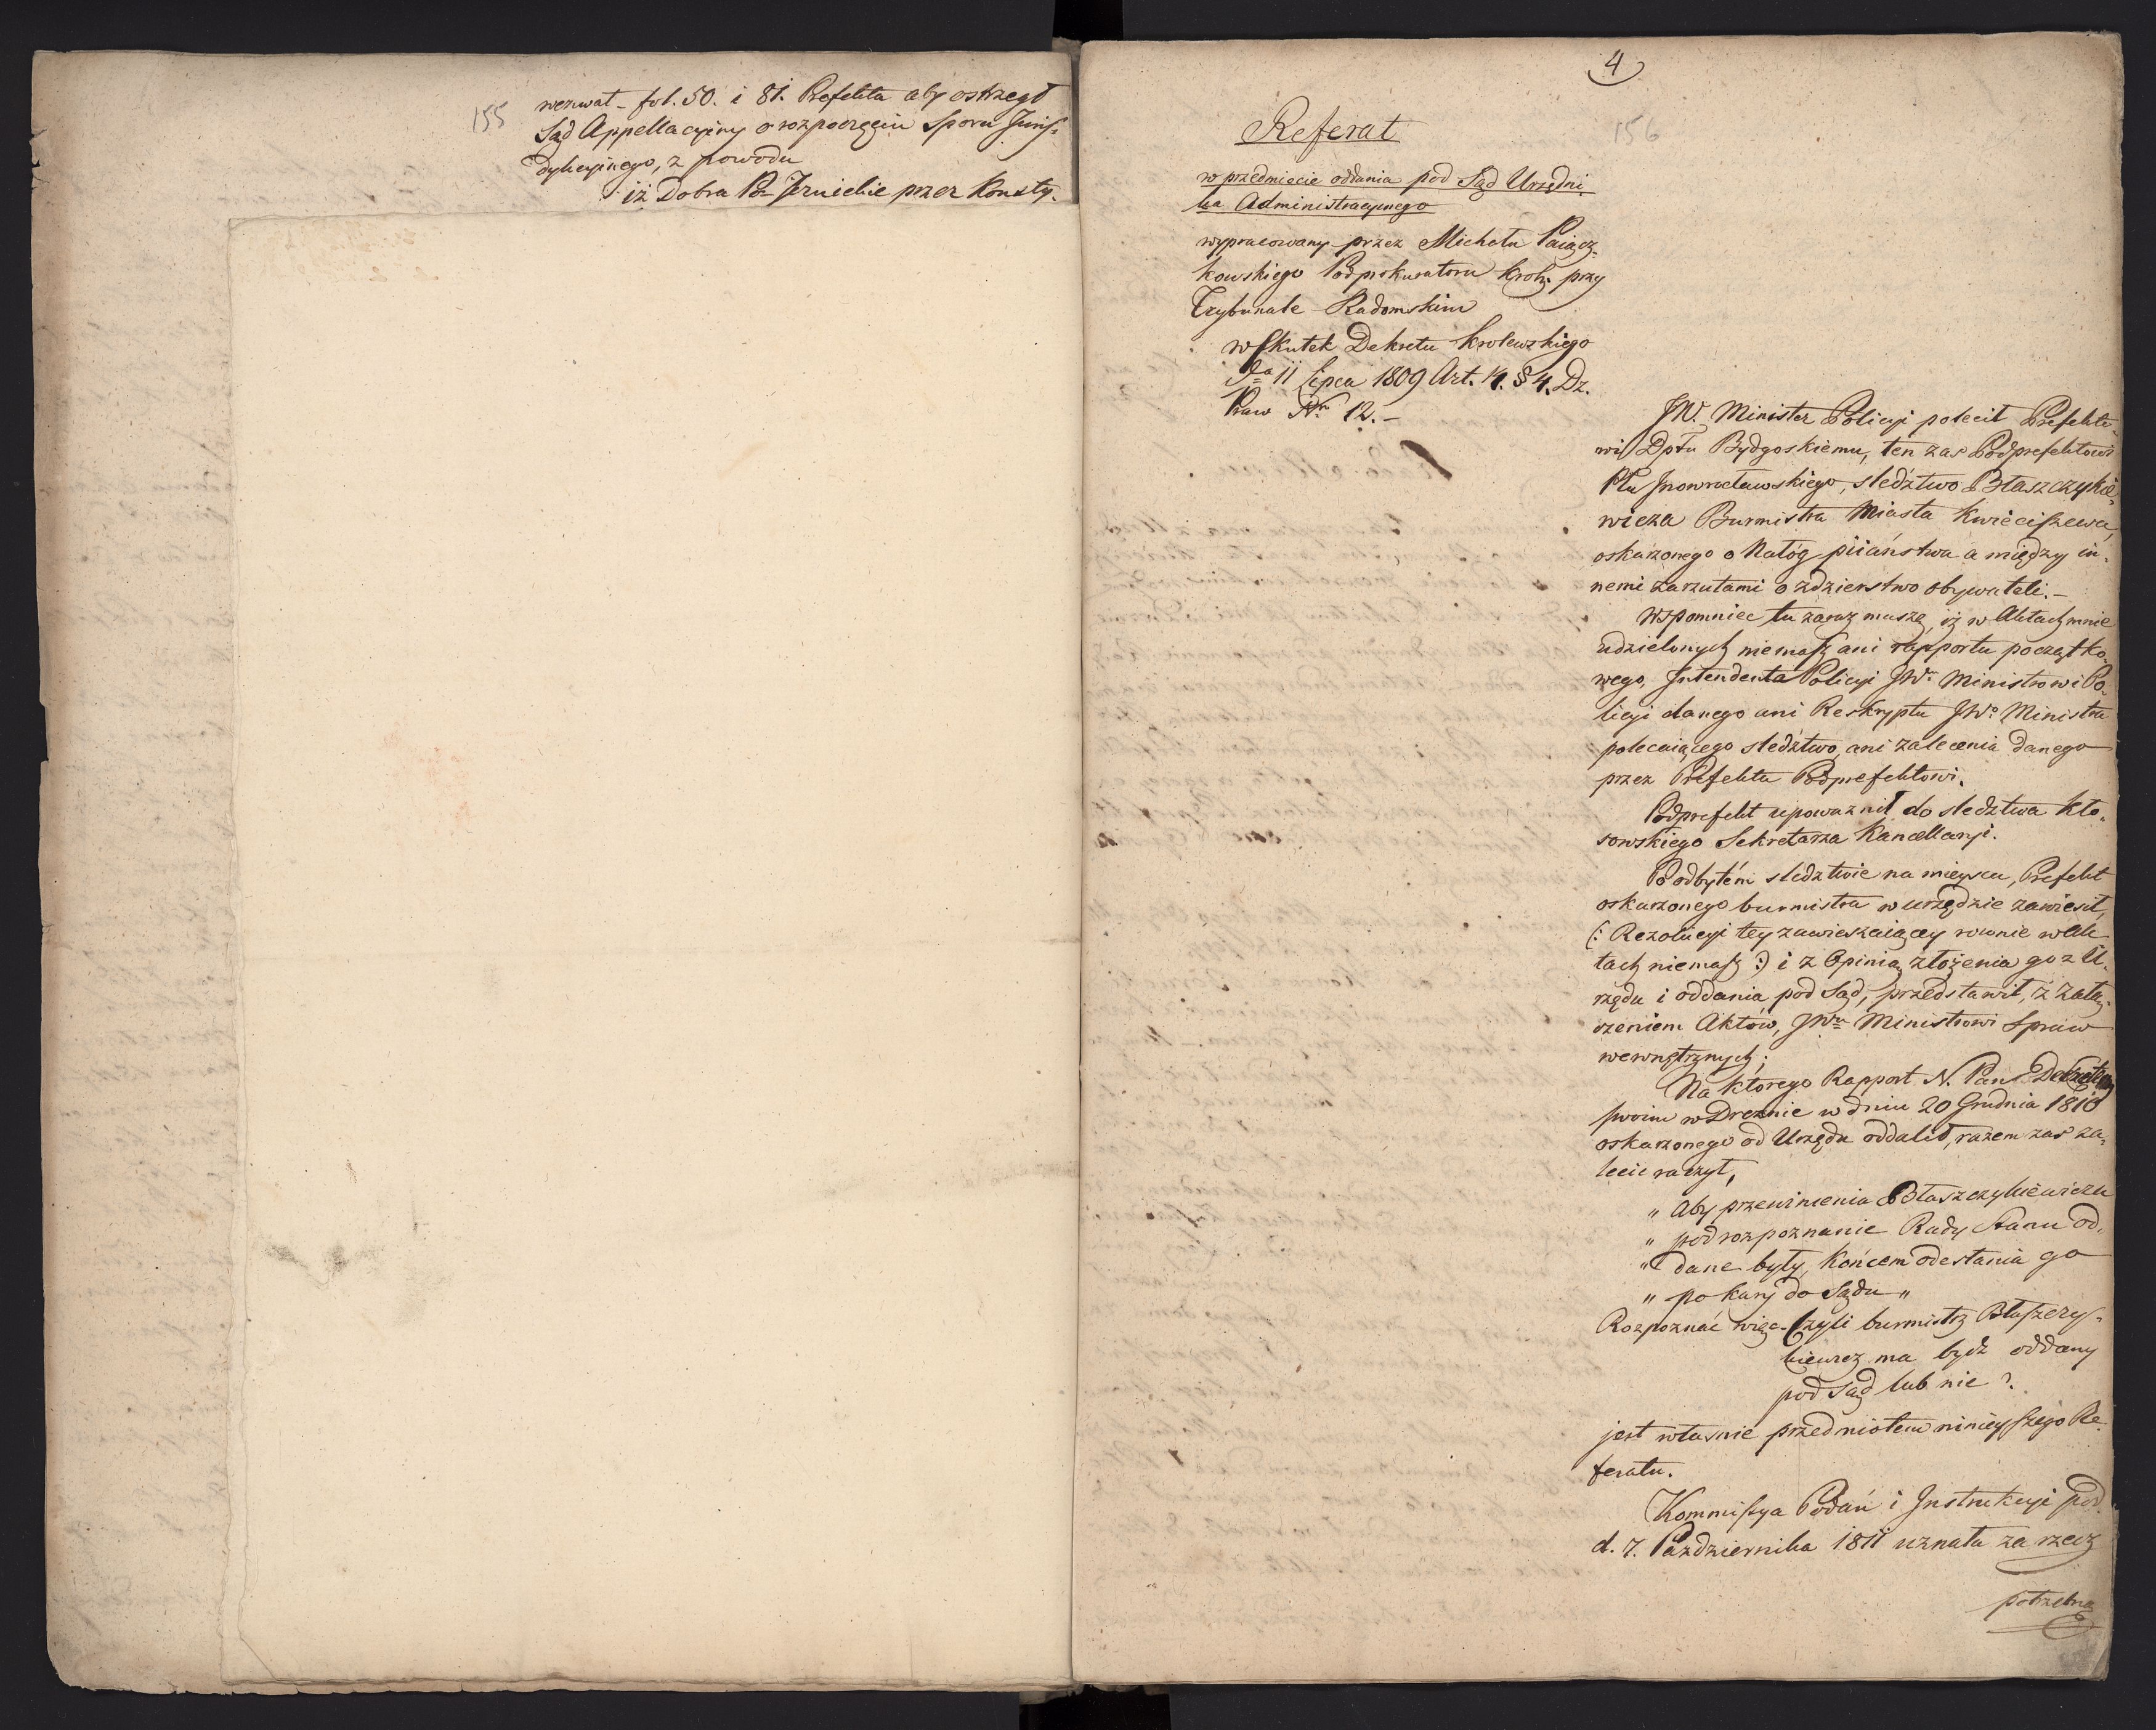 155
wezwał - fol. 50. i 81. Prefekta aby ostrzegł
Sąd Appellacyiny o rozpoczęciu Sporu Juris-
dykcyinego, z powodu
iż Dobra Po Jezuickie przez Konsty-
4
156
Referat
w przedmiocie oddania pod Sąd Urzędni-
ka Administracyinego
wypracowany przez Michała Paiącz-
kowskiego Podprokuratora Krolo. przy
Trybunale Radomskim
w skutek Dekretu Krolewskiego
da 11 Lipca 1809 Art. 14. § 4. Dz.
Praw Nr 12. -
JW. Minister Policyi polecił Prefekto-
wi Dptu Bydgoskiemu, ten zas Podprefektowi
Ptu Jnowrocławskiego, sledztwo Błaszczykie-
wicza Burmistra Miasta Kwieciszewa,
oskarzonego o Nałóg piiaństwa a między in-
nemi zarzutami o zdzierstwo obywateli. -
Wspomniec tu zaraz muszę, iż w Aktach mnie
udzielonych niemasz ani rapportu początko-
wego, Jntendenta Policyi JWo Ministrowi Po-
licyi danego ani Reskryptu JWo Ministra
polecaiącego sledztwo, ani zalecenia danego
przez Prefekta Podprefektowi.
Podprefekt upowaznił do sledztwa Kło-
sowskiego Sekretarza Kancellaryi.
Po odbytém sledztwie na mieyscu, Prefekt
oskarzonego burmistra w urzędzie zawiesił,
(: Rezolucyi tey zawieszaiącey rownie w Ak-
tach niemasz :) i z Opinią złożenia go z U-
rzędu i oddania pod Sąd, przedstawił, z załą-
czeniem Aktów, JWu Ministrowi Spraw
wewnętrznych;
Na którego Rapport N. Pan Dekretem
swoim w Dreznie w dniu 20 Grudnia 1810
oskarzonego od Urzędu oddalił, razem zas za-
lecic raczył,
" Aby przewinienia Błaszczykiewicza
" pod rozpoznanie Rady Stanu od-
" dane były, końcem odesłania go
" po karę do Sądu "
Rozpoznać więc - Czyli burmistrz Błaszczy-
kiewicz ma bydz oddany
pod Sąd lub nie ?
jest własnie przedmiotem ninieyszego Re-
feratu.
Kommissya Podań i Jnstrukcyi pod
d. 7. Pazdziernika 1811 uznała za rzecz
potrzebną